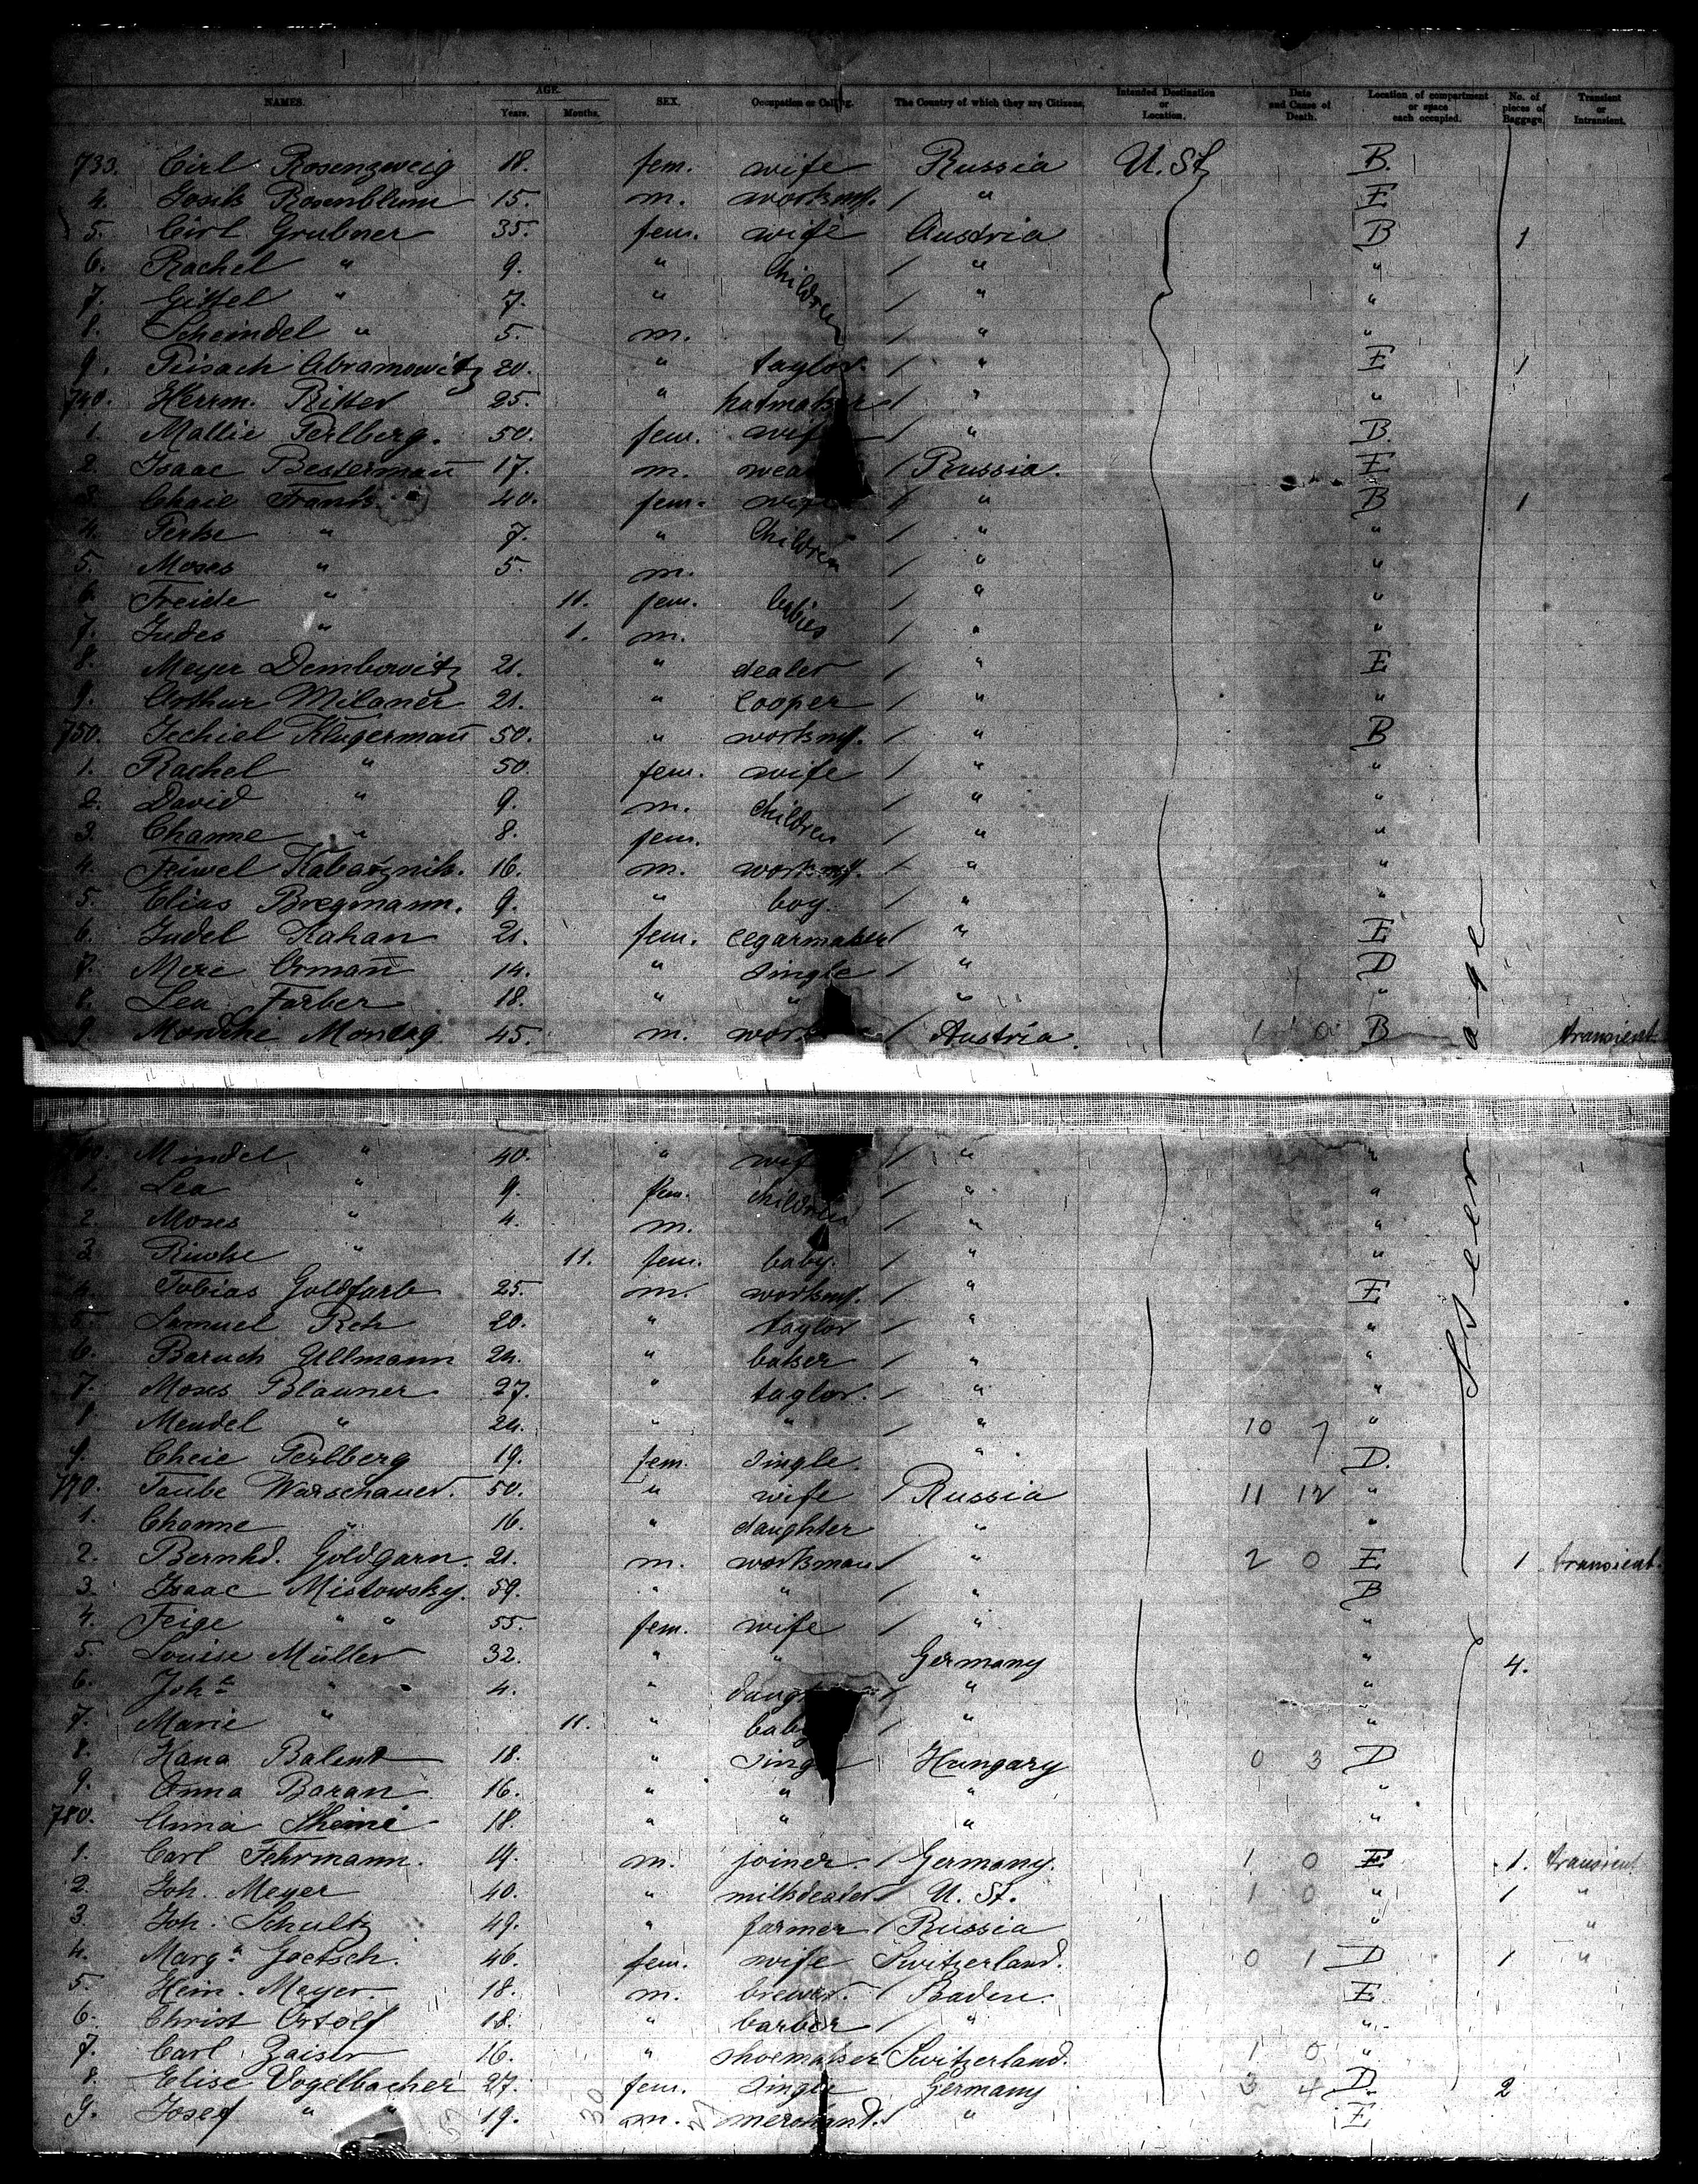 NAMES. AGE. Years. Months. SEX. Occupation or Calling. The Country of which they are Citizens. Intended Destination or Location. Date and Cause of Death. Location of compartment or space each occupied. No. of pieces of Baggage. Transient or Intransient.
733. Cirl Rosenzweig 18. fem. wife Russia U. St. B.
4. Josik Rosenblum 15. m. workmf. / " E
5. Cirl Grubner 35. fem. wife Austria B 1
6. Rachel " 9. " Children / " "
7. Gittel " 7. " / " "
8. Scheindel " 5. m. / " "
9. Peisach Abramowitz 20. " taylor. / " E 1
740. Herrm. Ritter 25. " hatmaker / " "
1. Mallie Perlberg. 50. fem. wife / " B.
2. Isaac Bestermañ 17. m. wea / Russia. E
3. Chaie Frank 40. fem. wife " B 1
4. Perke " 7. " Children / " "
5. Moses " 5. m. / " "
6. Freide " 11. fem. babies / " "
7. Judes " 1. m. / " "
8. Meyer Dembowitz 21. " dealer / " E
9. Arthur Milaner 21. " cooper / " "
750. Jechiel Klugermañ 50. " workmf. / " B
1. Rachel " 50. fem. wife / " "
2. David " 9. m. Children / " "
3. Channe " 8. fem. / " "
4. Feiwel Kabatznik. 16. m. workmf. / " "
5. Elias Bregmann. 9. " boy. / " "
6. Judel Kahan 21. fem. cegarmaker / " E
7. Mere Ormañ 14. " single / " D
8. Lea Farber 18. " " " "
9. Mordche Montag 45. m. wor / Austria. 1 0 B transient
760. Mindel " 40. " wif / " "
1. Lea " 9. fem. children " "
2. Moses " 4. m. / " "
3. Riwke " 11. fem. baby. / " "
4. Tobias Goldfarb 25. m. workmf. / " E
5. Samuel Reh 20. " taylor / " "
6. Baruch Ullmann 24. " baker / " "
7. Moses Blauner 27. " taylor. / " "
8. Mendel " 24. " " / " 10 7 "
9. Cheie Perlberg 19. fem. single. " D.
770. Taube Warschauer. 50. " wife / Russia 11 12 "
1. Channe " 16. " daughter " "
2. Bernhd. Goldgarn. 21. m. workman / " 2 0 E 1 transient.
3. Isaac Mistowsky. 59. " " / " B
4. Feige " " 55. fem. wife / " "
5. Louise Müller 32. " " Germany " 4.
6. Joh " 4. " daugh / " "
7. Marie " 11. " bab / " "
8. Hana Balent 18. " Sing Hungary 0 3 D
9. Anna Baran 16. " " " "
780. Anna 18. " " " "
1. Carl Fehrmann. 19. m. joiner. / Germany. 1 0 E 1. transient
2. Joh. Meyer 40. " milkdealer / U. St. 1 0 " 1 "
3. Joh. Schultz 49. " farmer / Russia " "
4. Marga Goetsch. 46. fem. wife Switzerland. 0 1 D 1 "
5. Hein. Meyer. 18. m. brewer. / Baden. E
6. Christ Ortolf 18. " barber / " "
7. Carl Zaiser 16. " shoemaker Switzerland. 1 0 "
8. Elise Vogelbacher 27. fem. single Germany 3 4 D. 2
9. Josef " " 19. m. merchand. / " E
Steerage